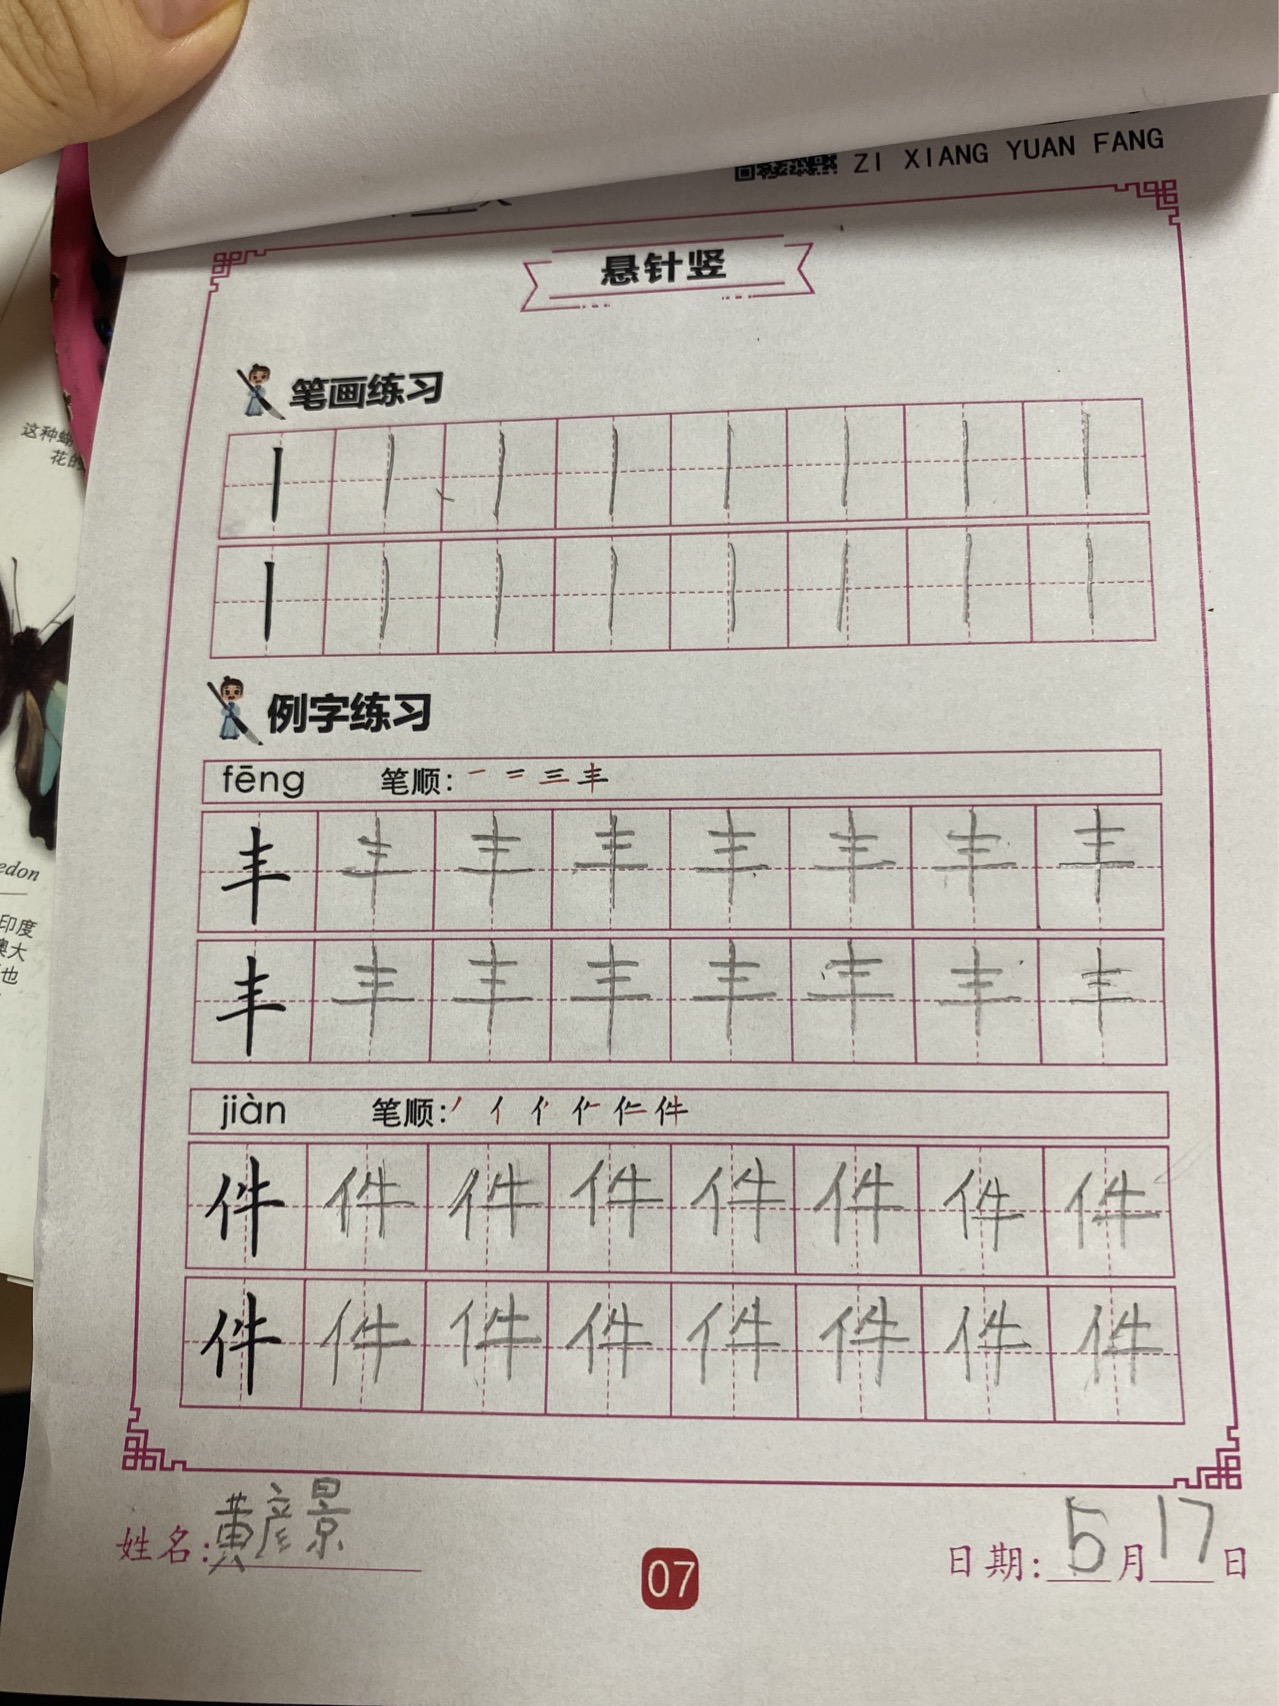 ZI XIANG YUAN FANG
悬针竖
笔画练习
例字练习
fēng 笔顺: 一 二 三 丰
丰 丰 丰 丰 丰 丰 丰 丰
丰 丰 丰 丰 丰 丰 丰 丰
jiàn 笔顺: 丿 亻 件
件 件 件 件 件 件 件 件
件 件 件 件 件 件 件 件
姓名: 黄彦景
07
日期: 5月17日
这种蝴
花的
edon
印度
澳大
也